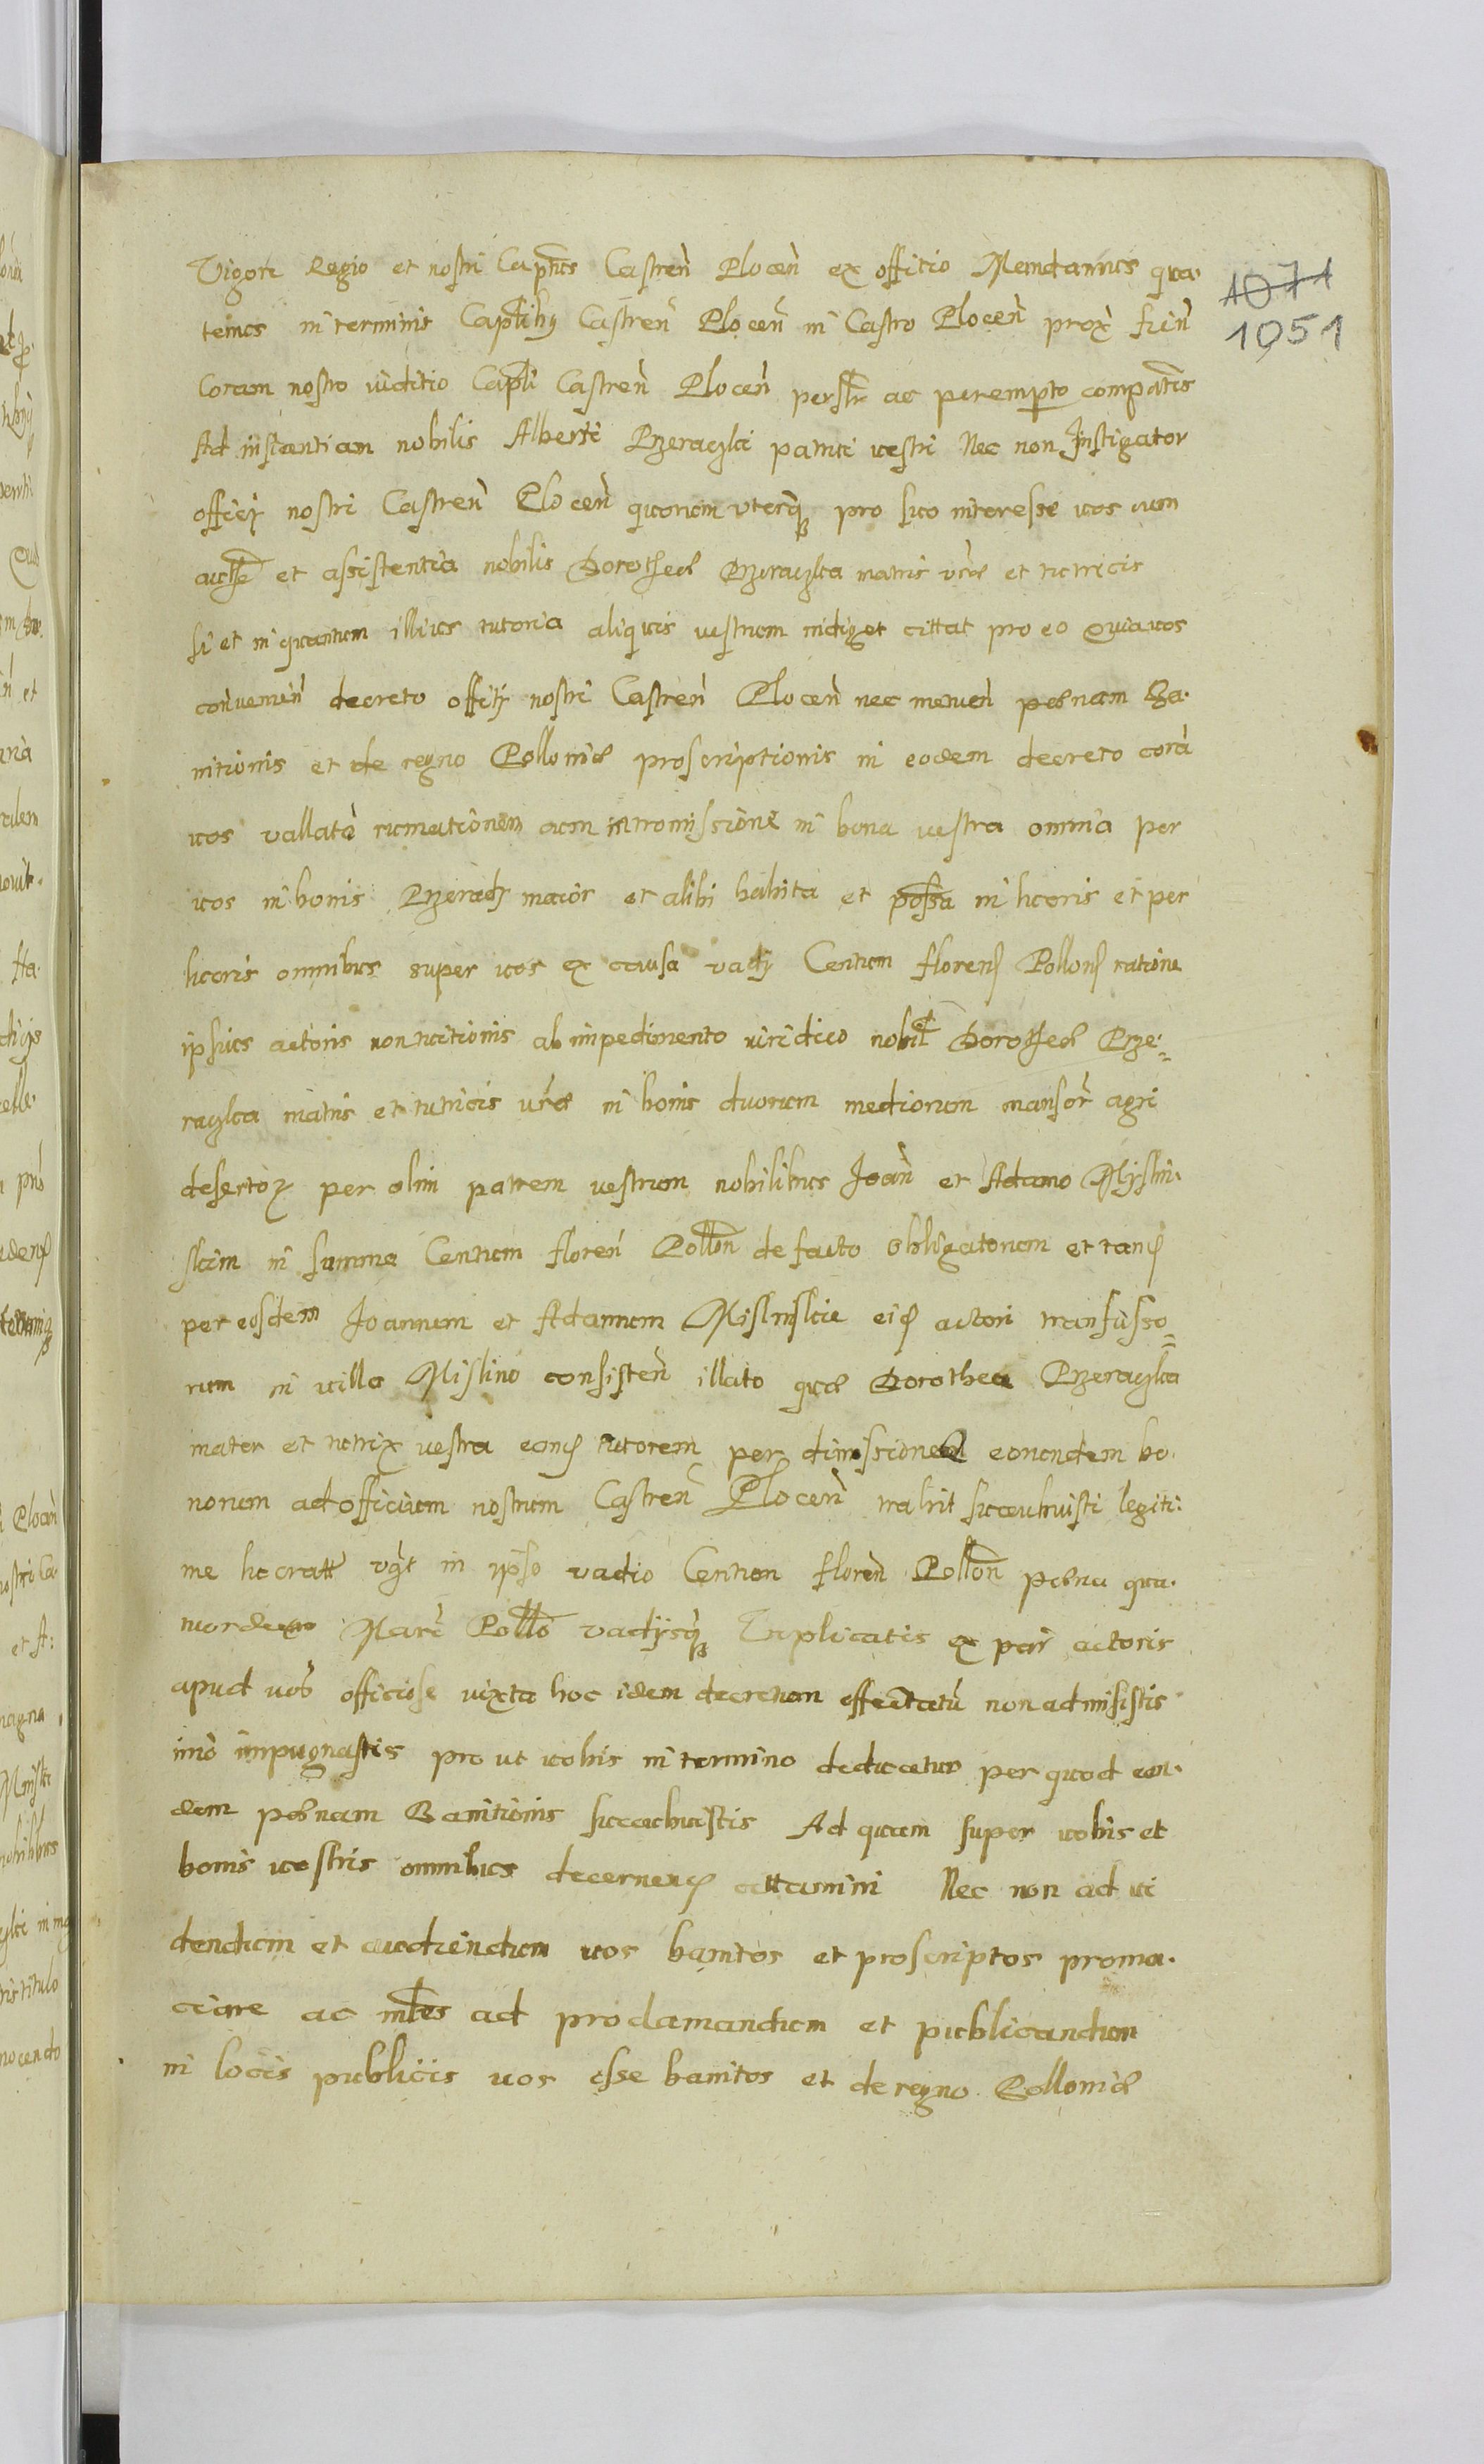 Vigore Regio et nostri Captūs Castreñ Ploceñ ex officio Mandamus qua-
tenus in terminis Captlibus Castreñ Ploceñ in Castro Ploceñ prox fieñ
Coram nostro iuditio Captli Castreñ Ploceñ persltr ac perempto compatis
Ad instantiam nobilis Alberti Przeraczki patrui vestri Nec non Instigator
officij nostri Castreñ Ploceñ quorum vterq3 pro suo interesse vos cum
aucthe et assistentia nobilis Dorotheæ Przeraczka matris vræ et tutricis
si et in quantum illius tutoria aliquis vestrum indiget cittat pro eo Quia vos
convenieñ decreto offitij nostri Castreñ Ploceñ nec metueñ pœnam Ba-
nitionis et de regno Polloniæ proscriptionis in eodem decreto corā
vos vallatā rumationem cum intromissione in bona vestra omnia per
vos in bonis Przeradz maior et alibi habita et possa in lucris et per
lucris omnibus super vos ex causa vadij Centum florenӡ Pollonӡ ratione
ipsius actoris non tuitionis ab impedimento iuridico nobil Dorotheæ Prze-
raczka matris et tutricis vræ in bonis duorum mediorum mansor agri
desertoꝝ per olim patrem vestrum nobilibus Joañ et Adamo Myslin-
skim in summa Centum floreñ Polloñ de facto obligatorum et tanӡ
per eosdem Joannem et Adamum Mislinskie eidӡ actori transfusso-
rum in villa Mislino consisteñ illato quæ Dorothea Przeraczka
mater et tutrix vestra eundӡ tutorem per dimissionem eorundem bo-
norum ad officium nostrum Castreñ Ploceñ trahit succubuisti legiti-
me lucratt vgt in ipso vadio Centum floreñ Polloñ pœna qua-
tuordecim Marc Pollo vadijsq3 Triplicatis ex par actoris
apud vos officiose iuxta hoc idem decretum effectatū non admisistis
imo impugnastis pro ut vobis in termino deducetur per quod ean-
dem pœnam Banitionis succubuistis Ad quam super vobis et
bonis vestris omnibus decernenӡ cittamini Nec non ad vi
dendum et audiendum vos banitos et proscriptos pronun-
ciare ac mltes ad proclamandum et publicandum
in locis publicis vos esse banitos et de regno Polloniæ
1071
1051